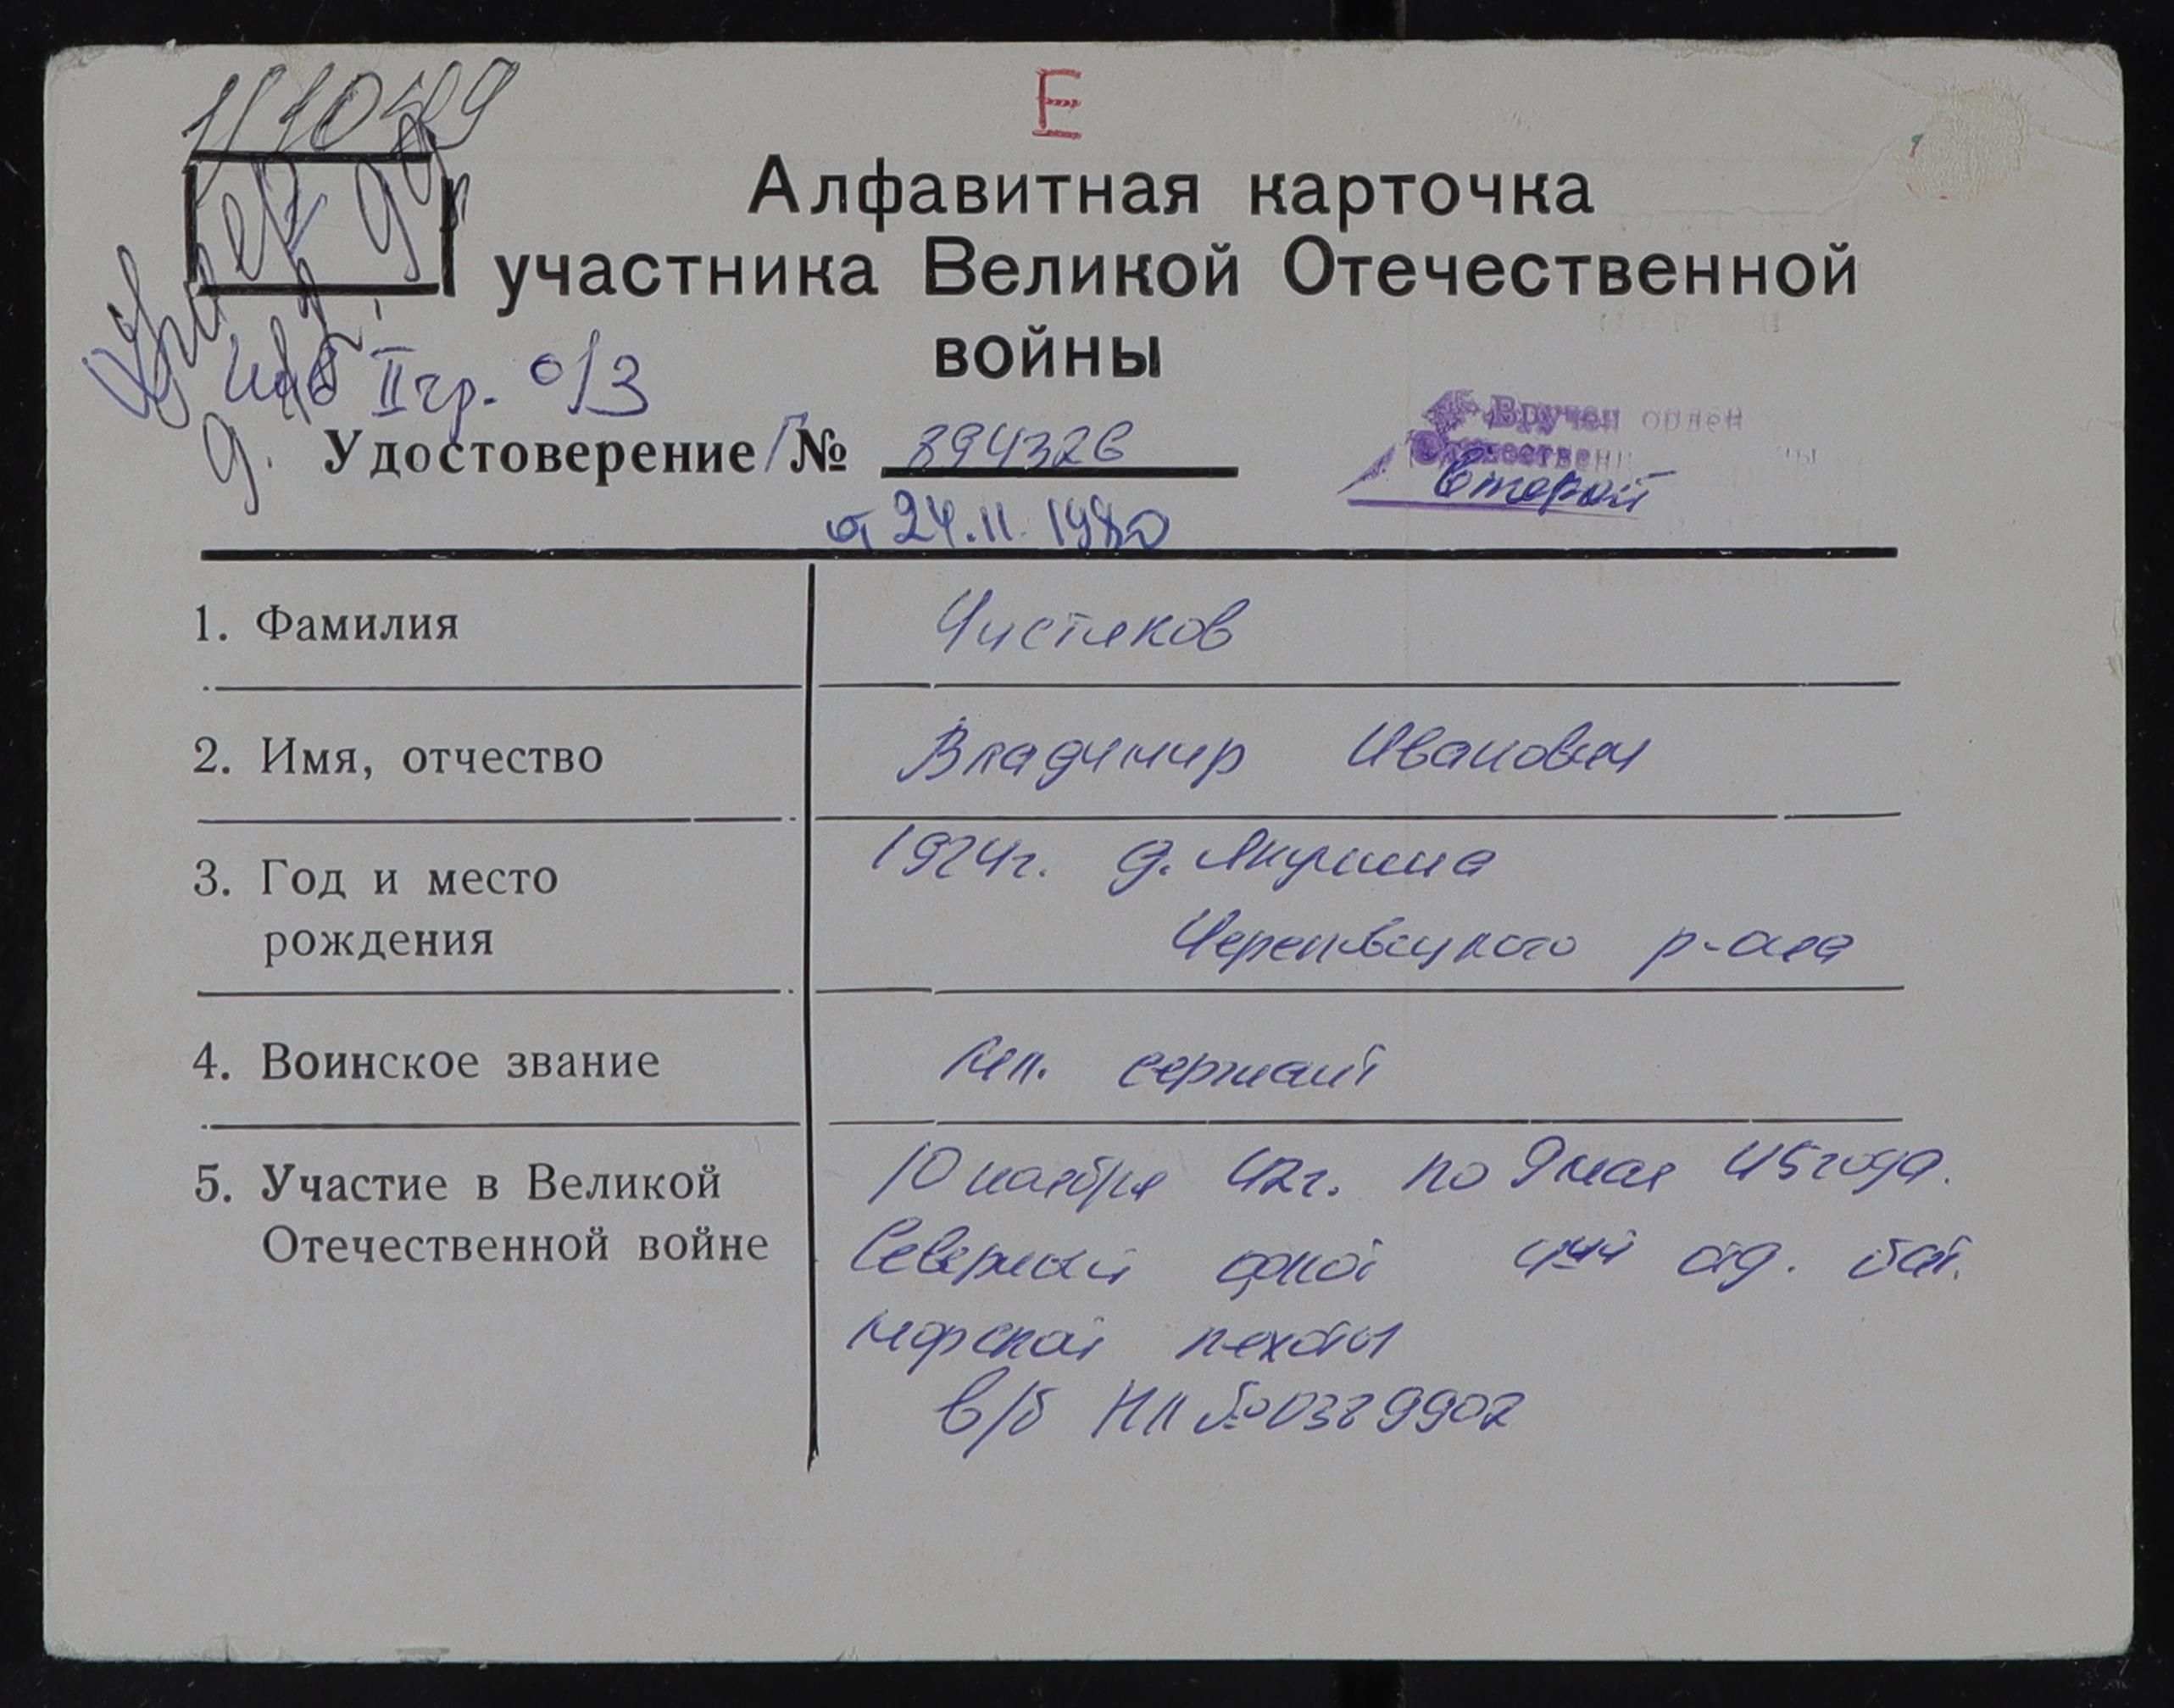 1110499
Е
Алфавитная карточка
участника Великой Отечественной
войны
инв IIгр. о/з
Удостоверение Г № 894326
от 24.11.1980
Вручен орден
Отечествен
Второй
1. Фамилия Чистяков
2. Имя, отчество Владимир Иванович
3. Год и место 1924г. д. Якунина
рождения Череповецкого р-она
4. Воинское звание мл. сержант
5. Участие в Великой 10 ноября 42г. по 9 мая 45 года.
Отечественной войне Северный флот 4ый отд. бат.
морской пехоты
в/б НП № 0389902